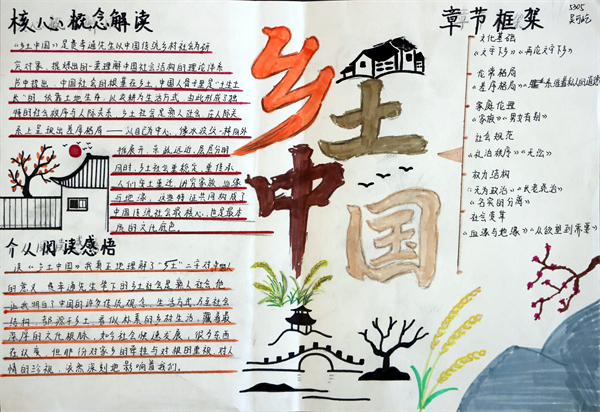 核心概念解读
《乡土中国》是费孝通先生以中国传统乡村社会为研
究对象,提炼出的一套理解中国社会结构的理论体系
书中提出,中国社会的根基在乡土,中国人骨子里是"土生土
长"的,依靠土地生存,以农耕为生活方式,由此形成了独
特的社会秩序与人际关系,乡土社会是熟人社会,在人际关
系上呈现出差序格局——以自己为中心,像水波纹一样向外
推展开,亲疏远近,层层分明
同时,乡土社会重稳定,重传承
人们安土重迁,讲究家族、血缘
与地缘,这些特征共同构成了
中国传统社会最核心,也是最本
质的文化底色。
个人阅读感悟
读《乡土中国》我真正地理解了"乡土"二字对中国人
的意义,费孝通先生笔下的乡土社会是熟人社会,他
让我明白了中国的许多传统观念、生活方式,乃至社会
结构,都源于乡土,看似朴素的乡村生活,藏着最
深厚的文化根脉,如今社会快速发展,很多东西
在改变,但那份对家乡的牵挂与对根的重视,对人
情的珍视,依然深刻地影响着我们。
乡土
中国
章节框架
5305
文化基础
《文字下乡》《再论文字下乡》
伦常格局
《差序格局》《维系着私人的道德》
家庭伦理
《家族》《男女有别》
社会规范
《礼治秩序》《无讼》
权力结构
《无为政治》《长老统治》
《名实的分离》
社会变革
《血缘与地缘》《从欲望到需要》